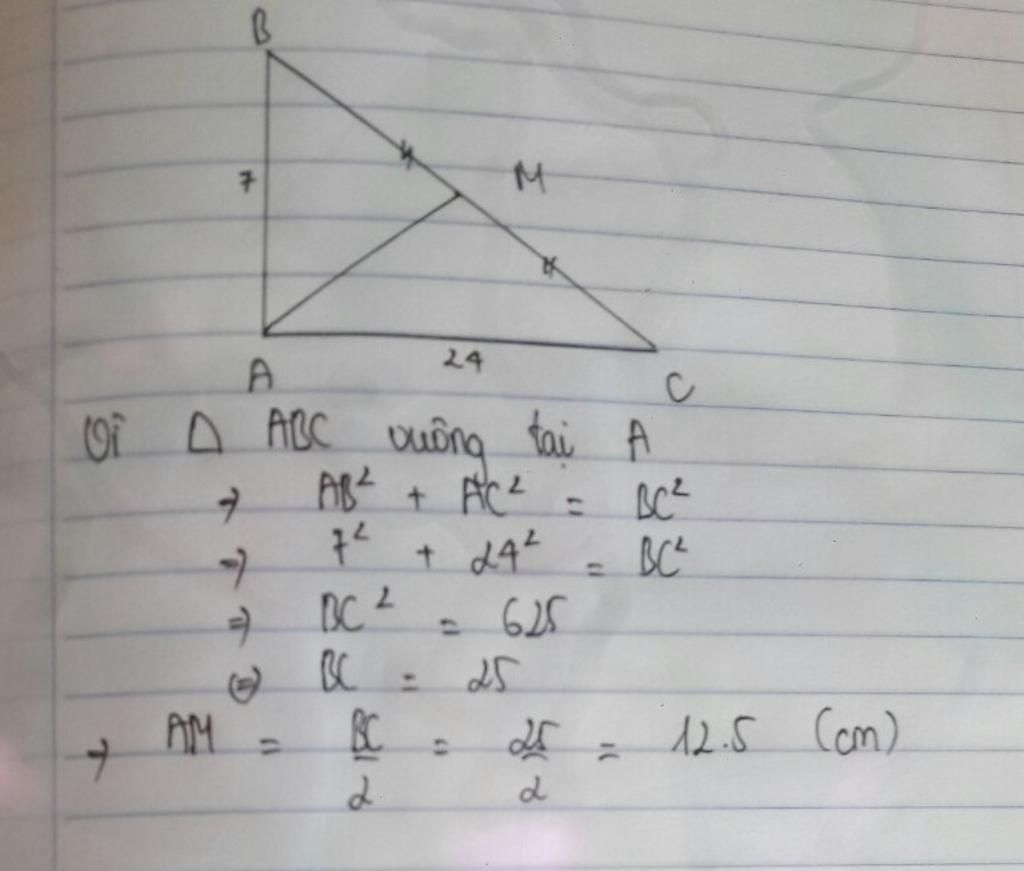 B
7
M
A
24
C
Vì Δ ABC vuông tại A
→ AB² + AC² = BC²
⇒ 7² + 24² = BC²
⇒ BC² = 625
⇔ BC = 25
→ AM = BC/2 = 25/2 = 12.5 (cm)